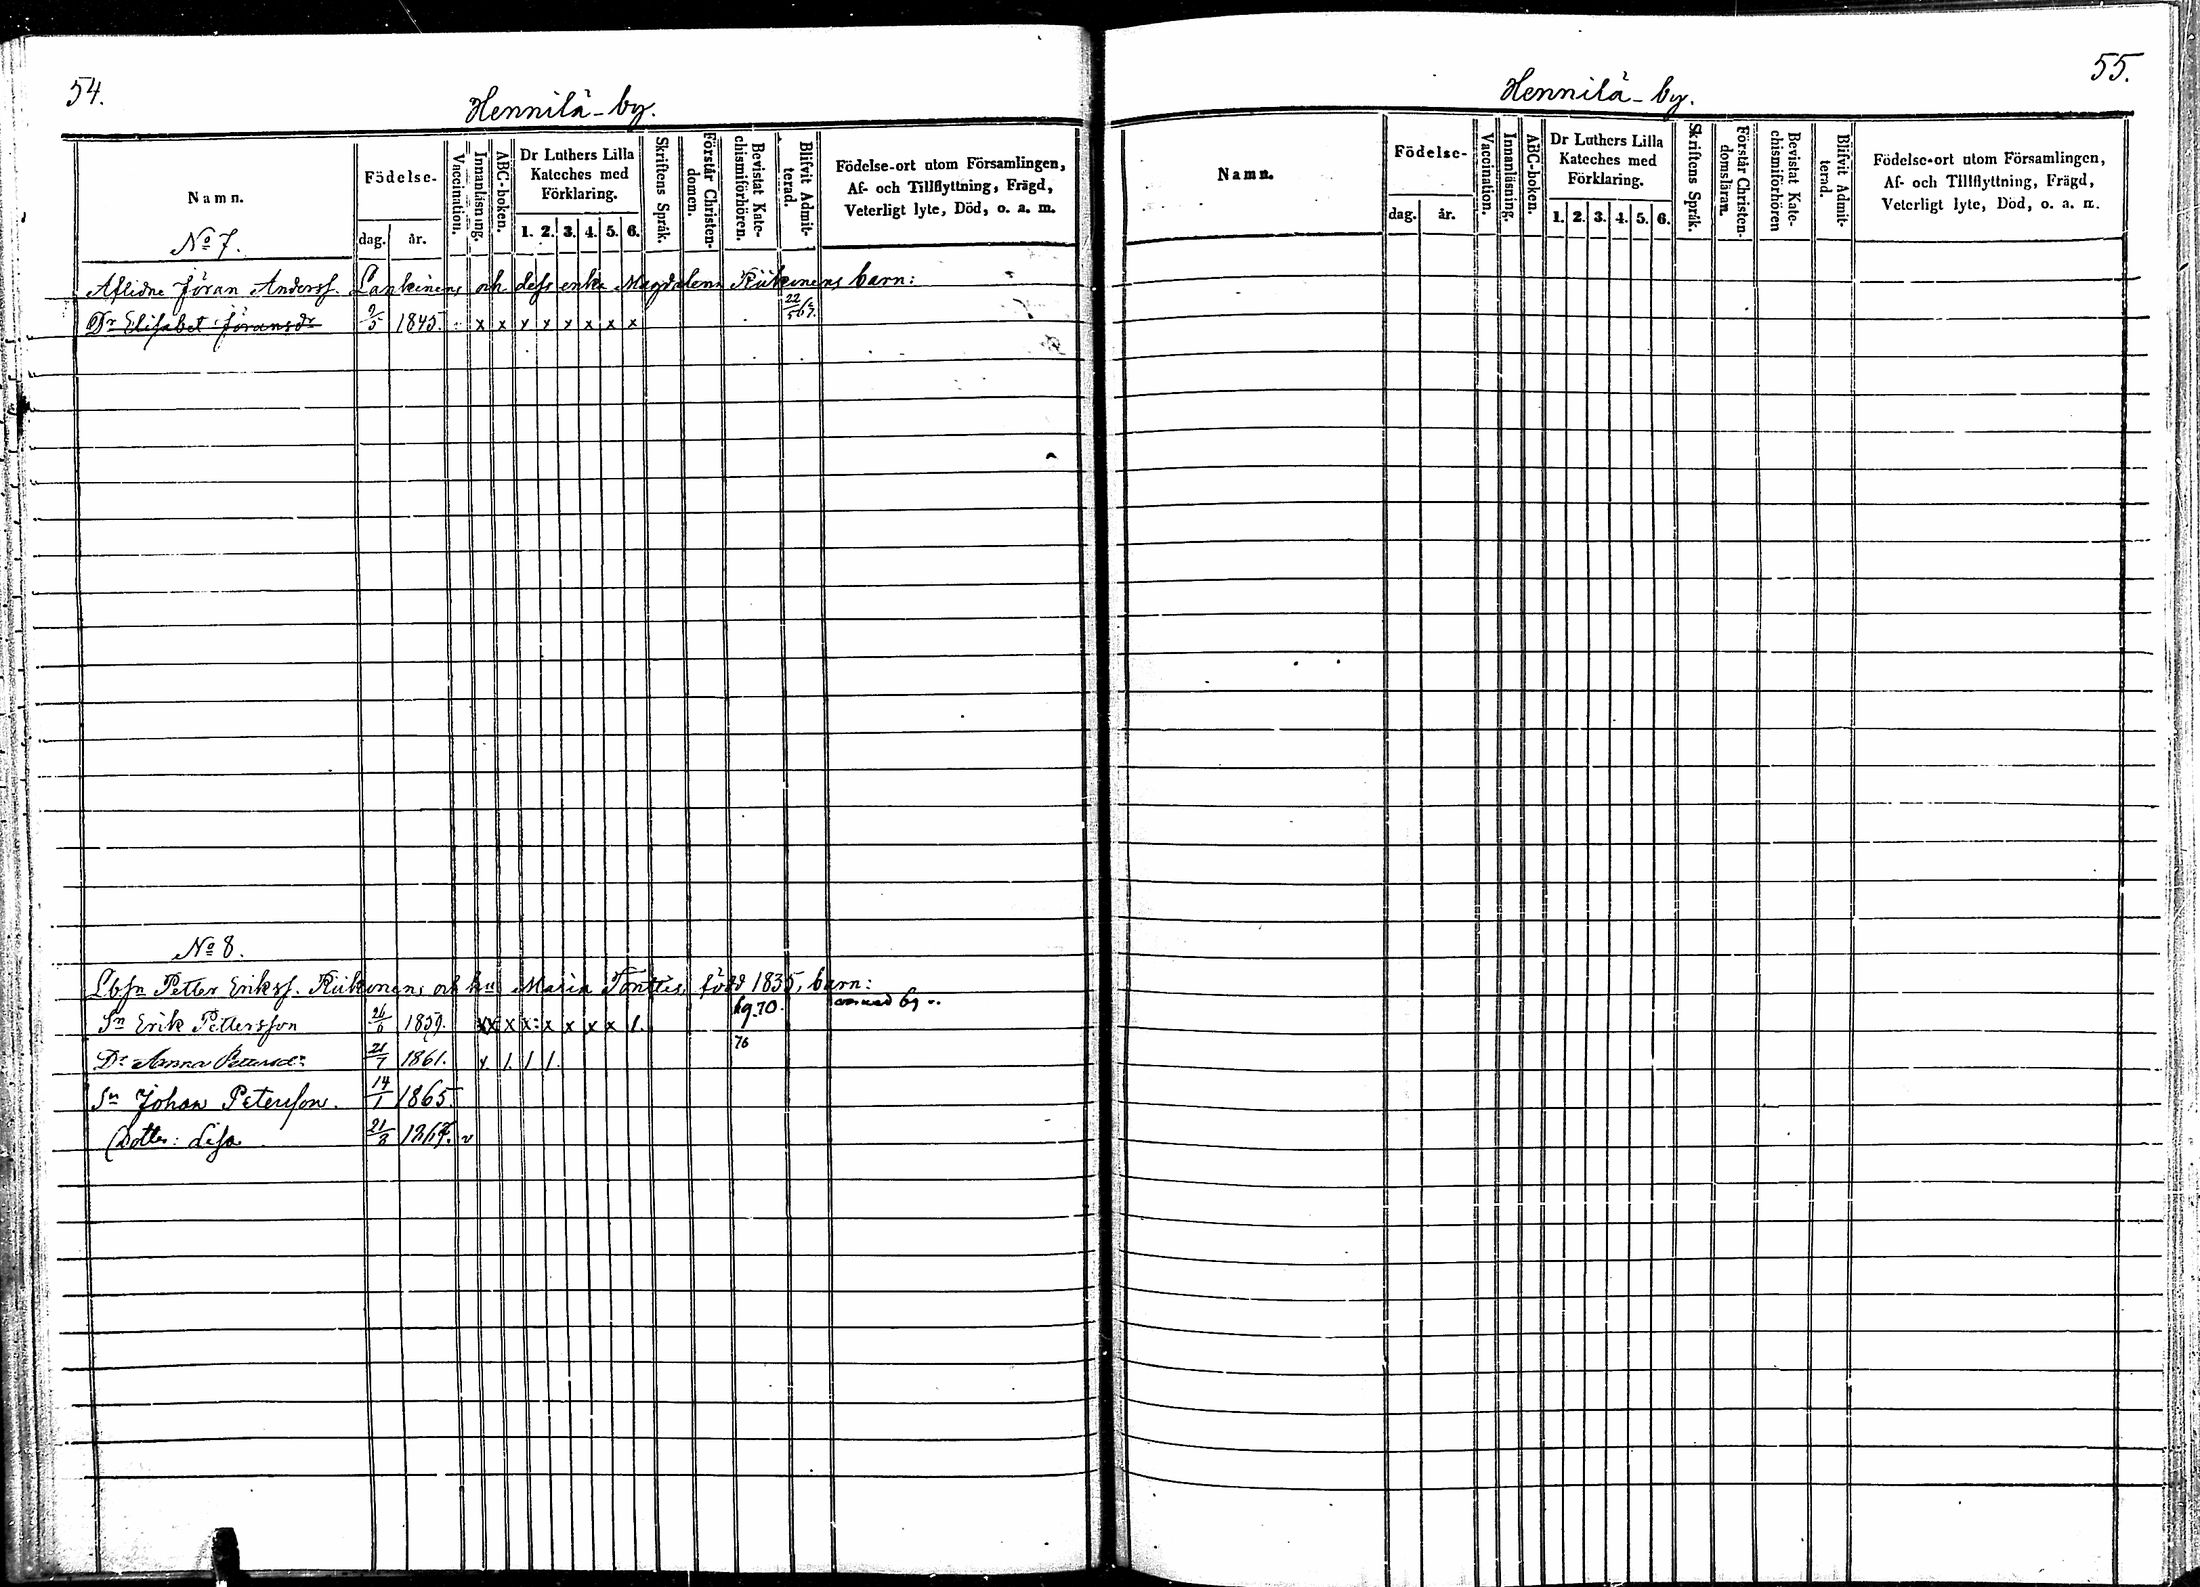 54.
Hennilä-by.
Namn.
Födelse-
dag. år.
Vaccination.
Innanläsning.
ABC-boken.
Dr Luthers Lilla
Kateches med
Förklaring.
1. 2. 3. 4. 5. 6.
Skriftens Språk.
Förstår Christen-
domen.
Bevistat Kate-
chismiförhören.
Blifvit Admit-
terad.
Födelse-ort utom Församlingen,
Af- och Tillflyttning, Frägd,
Veterligt lyte, Död, o. a. m.
No 7.
Aflidne Jöran Anderss. Lankinens och dess enka Magdalena Riikonens barn:
Dr Elisabet Jöransdr 9/5 1845. x x x x x x x x 22/5
No 8.
Lbsn Petter Erikss. Riikonens och hu Maria Tonttis, född 1835, barn:
Sn Erik Pettersson 26/6 1859. x x x x x x x 1. 69.70.
Dr Anna Pettersdr 21/7 1861. x 1 1 1 70
Sn Johan Petersson. 14/1 1865.
Dotter: Lisa 21/8 v
55.
Hennilä-by.
Namn.
Födelse-
dag. år.
Vaccination.
Innanläsning.
ABC-boken.
Dr Luthers Lilla
Kateches med
Förklaring.
1. 2. 3. 4. 5. 6.
Skriftens Språk.
Förstår Christen-
domsläran.
Bevistat Kate-
chismiförhören
Blifvit Admit-
terad.
Födelse-ort utom Församlingen,
Af- och Tillflyttning, Frägd,
Veterligt lyte, Död, o. a. m.